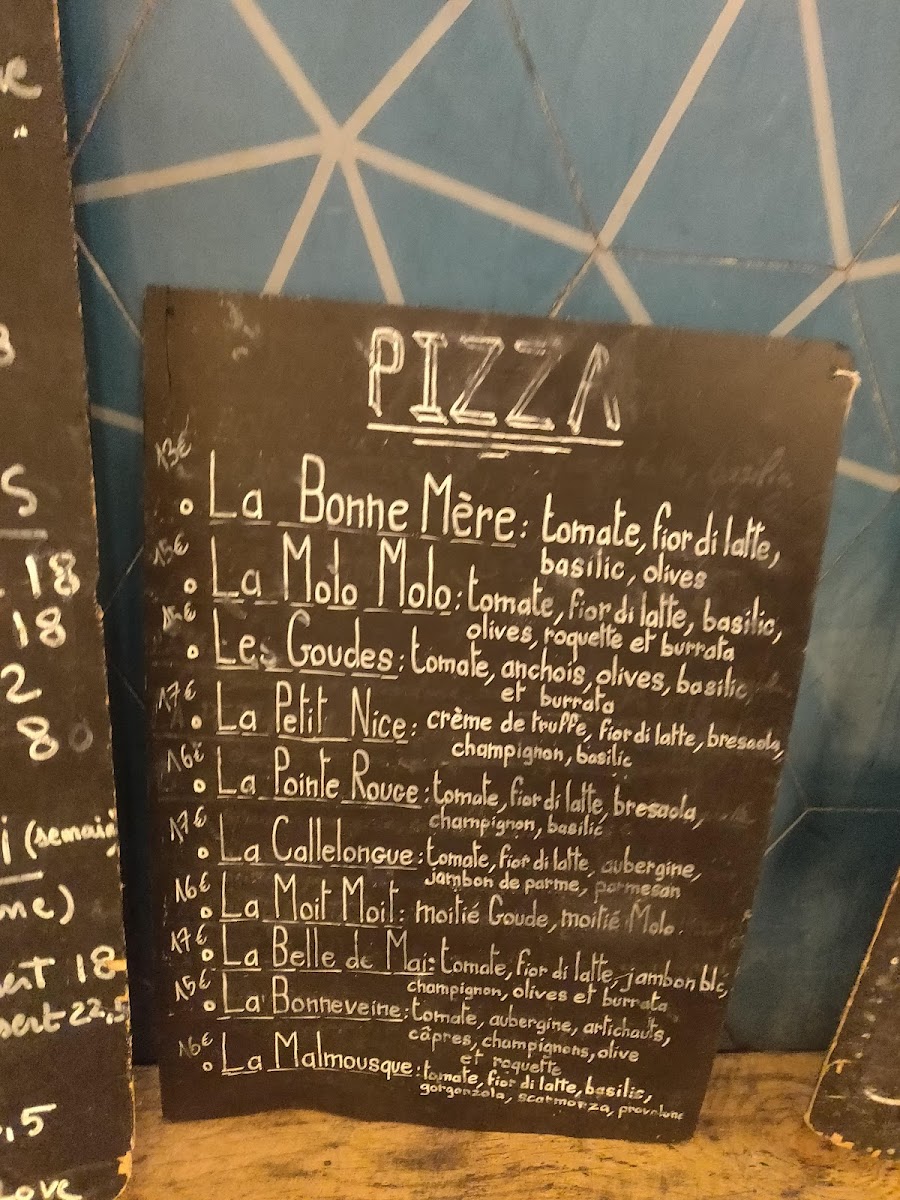 PIZZA
13€
La Bonne Mère: tomate, fior di latte,
basilic, olives
15€
La Molo Molo: tomate, fior di latte, basilic,
olives, roquette et burrata
Les Goudes: tomate, anchois, olives, basilic
et burrata
17€
La Petit Nice: crème de truffe, fior di latte, bresaola,
champignon, basilic
16€
La Pointe Rouge: tomate, fior di latte, bresaola,
champignon, basilic
17€
La Callelongue: tomate, fior di latte, aubergine,
jambon de parme, parmesan
16€
La Moit Moit: moitié Goude, moitié Molo.
17€
La Belle de Mai: tomate, fior di latte, jambon blc,
champignon, olives et burrata
15€
La Bonneveine: tomate, aubergine, artichauts,
câpres, champignons, olive
et roquette
16€
La Malmousque: tomate, fior di latte, basilic,
gorgonzola, scarmorza, provolone
S
18
18
2
8
(semaine)
me)
18
22,5
,5
Love